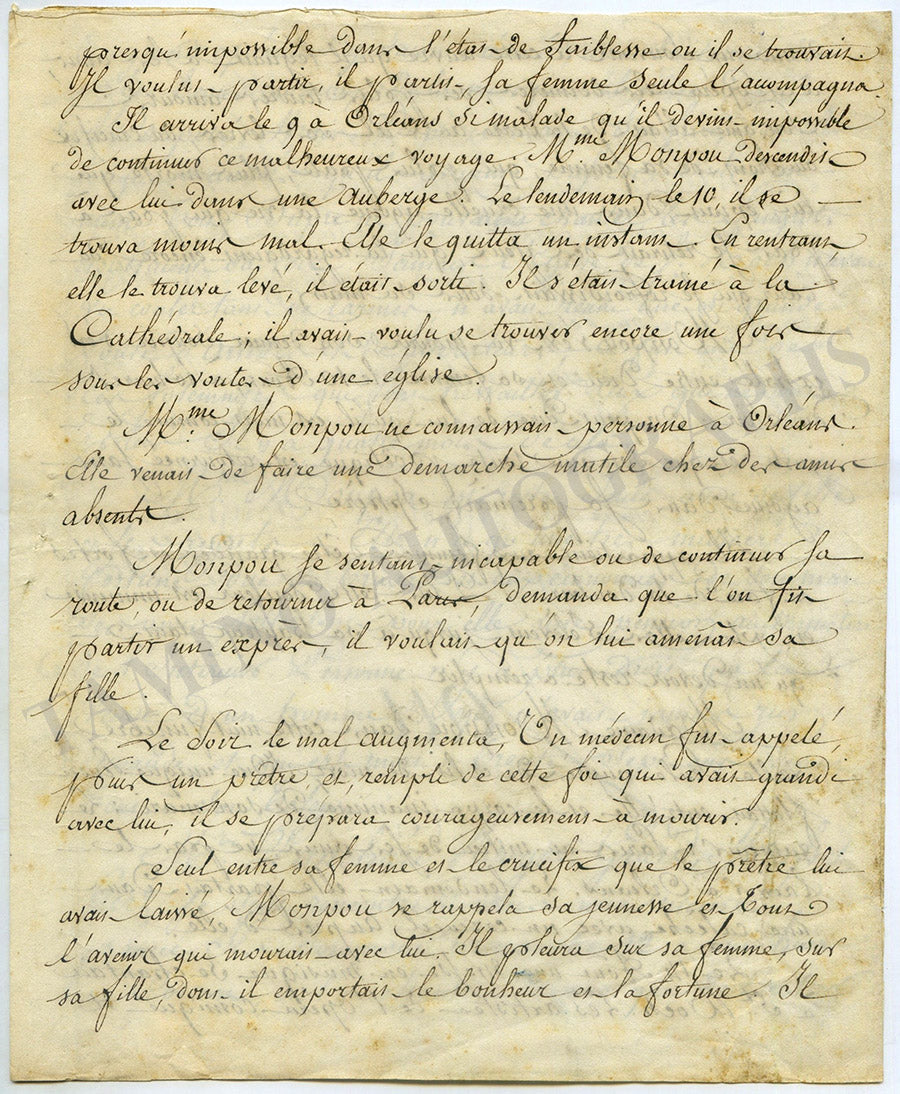 presqu'impossible dans l'état de faiblesse ou il se trouvait.
Il voulut partir, il partit, sa femme seule l'acompagna.
Il arriva le 9 à Orléans si malade qu'il devint impossible
de continuer ce malheureux voyage. Mme. Monpou descendit
avec lui dans une Auberge. Le lendemain, le 10, il se
trouva moins mal. Elle le quitta un instant. En rentrant
elle le trouva levé, il était sorti. Il s'était traîné à la
Cathédrale ; il avait voulu se trouver encore une fois
sous les voutes d'une église.
Mme. Monpou ne connaissait personne à Orléans.
Elle venait de faire une demarche inutile chez des amis
absents.
Monpou se sentant incapable ou de continuer sa
route, ou de retourner à Paris, demanda que l'on fit
partir un exprès, il voulait qu'on lui amenât sa
fille.
Le Soir le mal augmenta, Un médecin fut appelé,
puis un prêtre et, rempli de cette foi qui avait grandi
avec lui, il se prépara courageusement à mourir.
Seul entre sa femme et le crucifix que le prêtre lui
avait laissé, Monpou se rappela sa jeunesse et Tout
l'avenir qui mourait avec lui. Il pleura sur sa femme, sur
sa fille, dont il emportait le bonheur et la fortune. Il
TAMINO AUTOGRAPHS